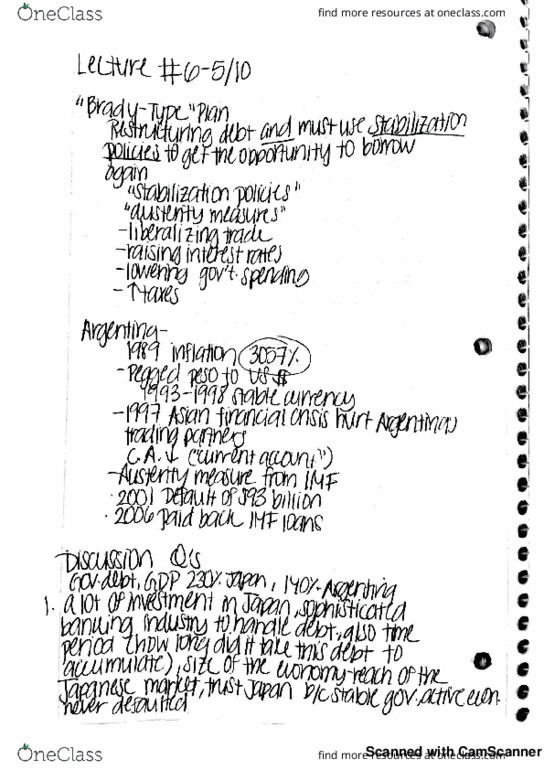 OneClass
find more resources at oneclass.com
Lecture #6-5/10
"Brady-Type" Plan
Restructuring debt and must use stabilization
policies to get the opportunity to borrow
again
"stabilization policies"
"austerity measures"
-liberalizing trade
-raising interest rates
-lowering gov't. spending
-↑taxes
Argentina-
1989 inflation 3057%
-Pegged peso to US $
1993-1998 stable currency
-1997 Asian financial crisis hurt Argentina's
trading partners
C.A.↓ ("current account")
-Austerity measure from IMF
·2001 Default of $93 billion
·2006 paid back IMF loans
Discussion Q's
Gov. debt, GDP 230% Japan, 140% Argentina
1. a lot of investment in Japan, sophisticated
banking industry to handle debt, also time
period (how long did it take this debt to
accumulate), size of the economy-reach of the
Japanese market, trust Japan b/c stable gov. active econ
never defaulted
OneClass
find more resources at oneclass.com
Scanned with CamScanner